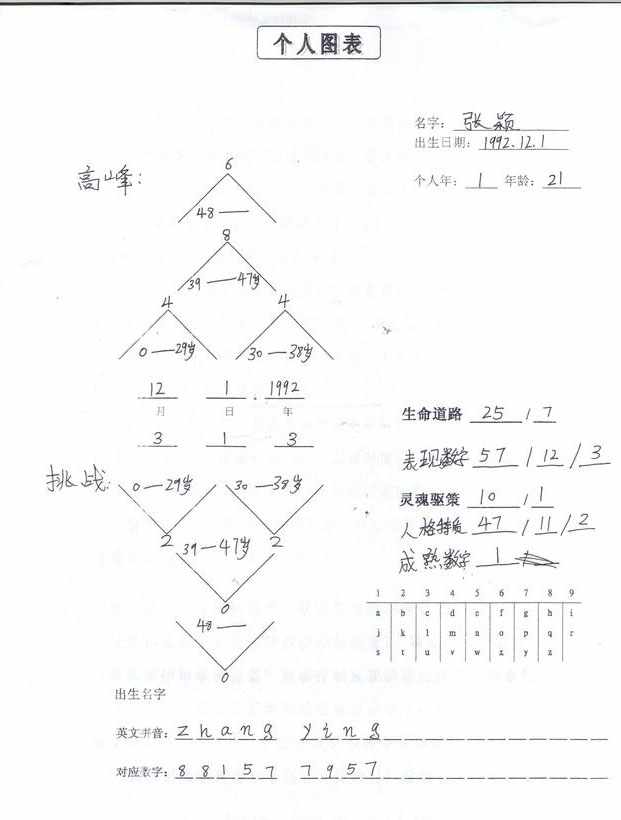 个人图表
名字: 张颖
出生日期: 1992.12.1
个人年: 1 年龄: 21
高峰:
6
48 —
8
39 — 47岁
4 4
0 — 29岁 30 — 38岁
12 1 1992
月 日 年
3 1 3
挑战:
0 — 29岁 30 — 38岁
2 2
39 — 47岁
0
48 —
0
生命道路 25 / 7
表现数字 57 / 12 / 3
灵魂驱策 10 / 1
人格特质 47 / 11 / 2
成熟数字 1
1 2 3 4 5 6 7 8 9
a b c d e f g h i
j k l m n o p q r
s t u v w x y z
出生名字
英文拼音: z h a n g y i n g
对应数字: 8 8 1 5 7 7 9 5 7